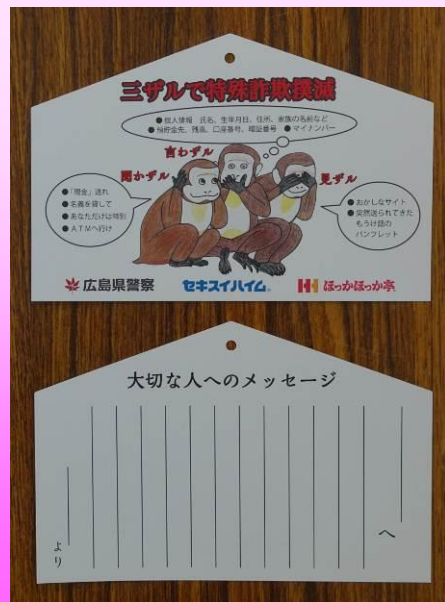 三ザルで特殊詐欺撲滅
●個人情報 氏名、生年月日、住所、家族の名前など
●預貯金先、残高、口座番号、暗証番号 ●マイナンバー
言わザル
聞かザル
見ザル
●「現金」送れ
●名義を貸して
●あなただけは特別
●ATMへ行け
●おかしなサイト
●突然送られてきた
もうけ話の
パンフレット
広島県警察
セキスイハイム
ほっかほっか亭
大切な人へのメッセージ
へ
より